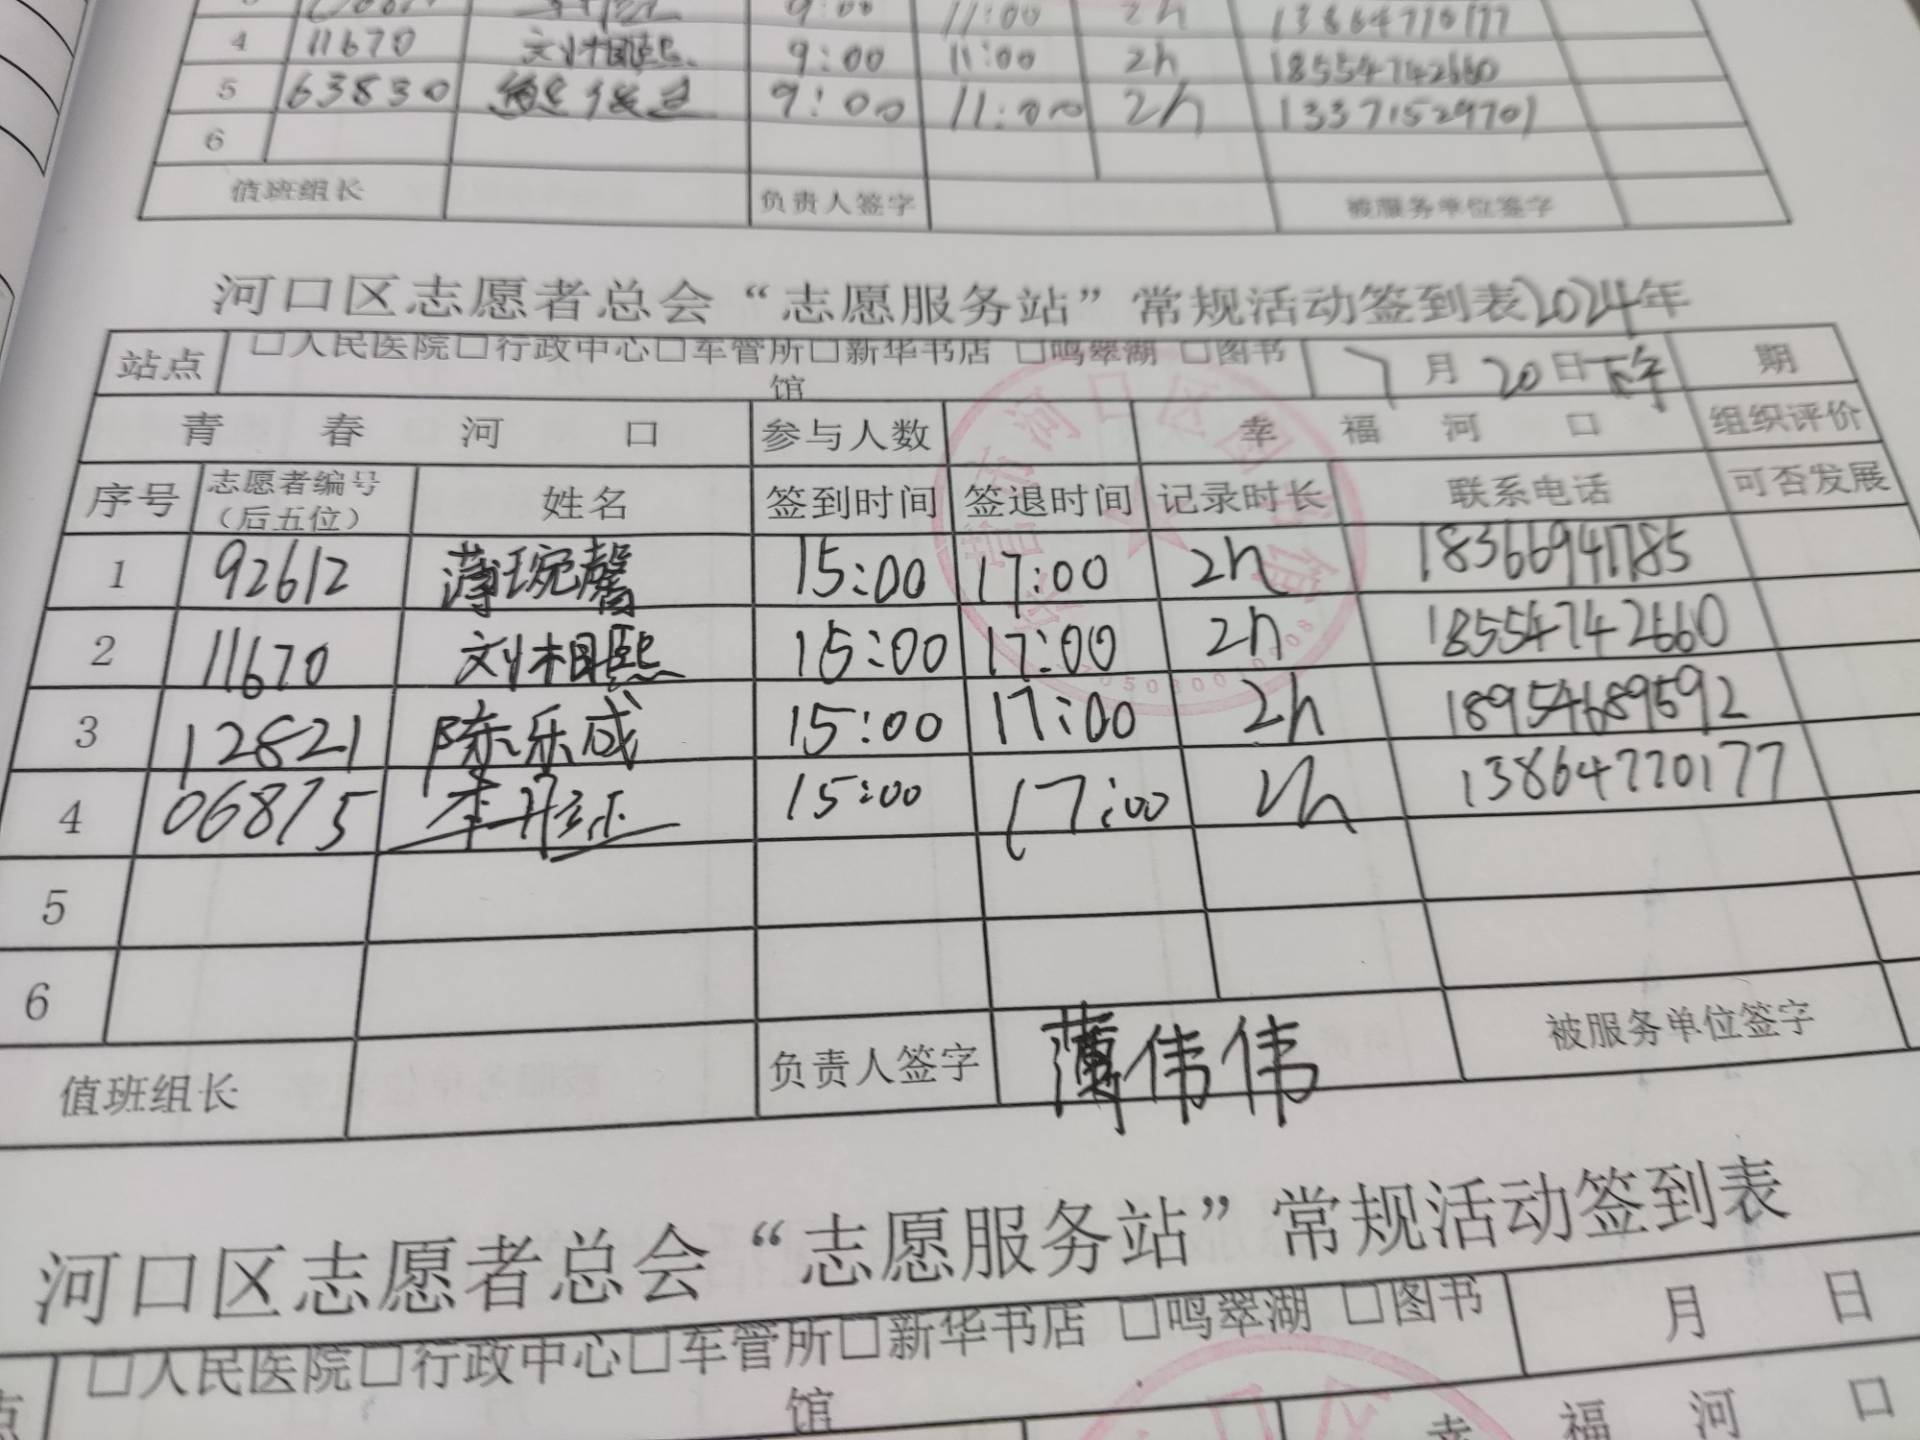 9:00 11:00 2h 13864770177
4 11670 刘相熙 9:00 11:00 2h 18554742660
5 63830 9:00 11:00 2h 13371529701
6
值班组长 负责人签字 被服务单位签字
河口区志愿者总会“志愿服务站”常规活动签到表2024年
站点 □人民医院□行政中心□车管所□新华书店 □鸣翠湖 □图书馆 7月20日下午 期
青春河口 参与人数 幸福河口 组织评价
序号 志愿者编号（后五位） 姓名 签到时间 签退时间 记录时长 联系电话 可否发展
1 92612 薄琬馨 15:00 17:00 2h 18366941785
2 11670 刘相熙 15:00 17:00 2h 18554742660
3 12821 陈乐成 15:00 17:00 2h 18954689592
4 06875 李 15:00 17:00 2h 13864770177
5
6
值班组长 负责人签字 薄伟伟 被服务单位签字
河口区志愿者总会“志愿服务站”常规活动签到表
点 □人民医院□行政中心□车管所□新华书店 □鸣翠湖 □图书馆 月 日
幸福河口